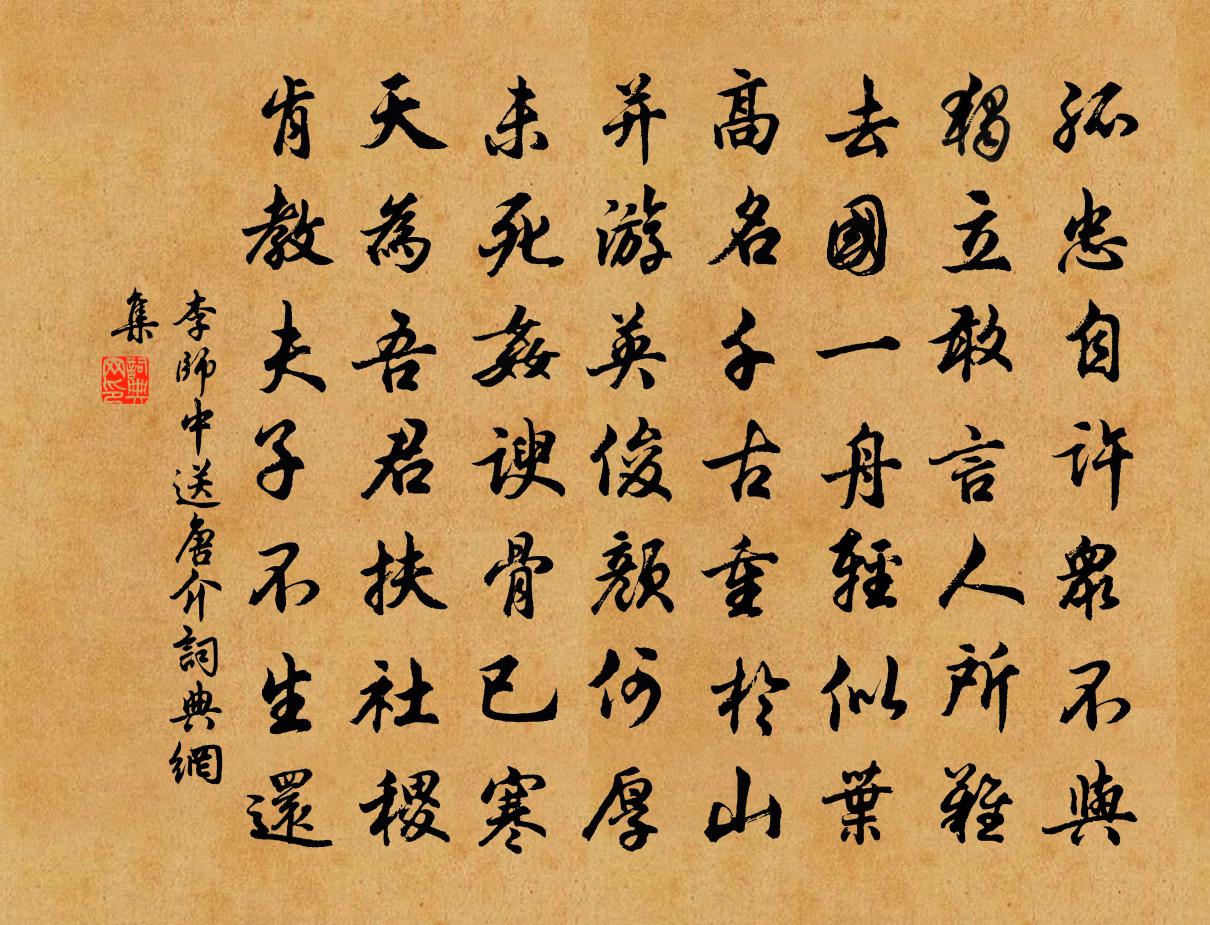 孤忠自許衆不與
獨立敢言人所難
去國一舟輕似葉
高名千古重於山
并游英俊顏何厚
未死姦諛骨已寒
天為吾君扶社稷
肯教夫子不生還
李師中送唐介詞典網
集
詞典
网印